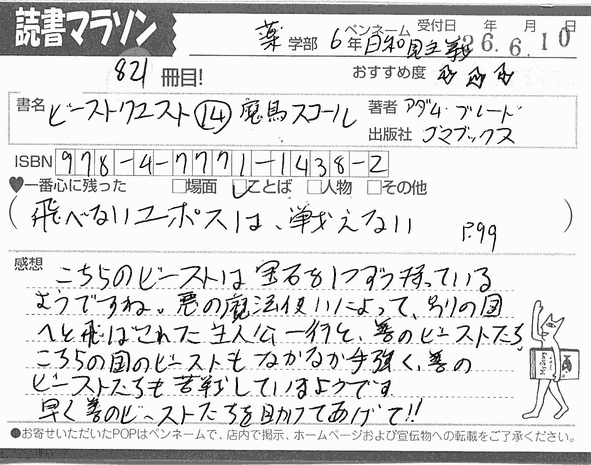 読書マラソン
薬 学部 6年 ペンネーム 日和見主義 受付日 年 月 日 26.6.10
821 冊目!
おすすめ度 ☆☆☆
書名 ビーストクエスト⑭ 魔馬スコール
著者 アダム・ブレード
出版社 ゴマブックス
ISBN 978-4-7771-1438-2
♥一番心に残った □場面 ☑ことば □人物 □その他
(飛べないエポスは、戦えない P.99)
感想
こちらのビーストは宝石を1つずつ持っている
ようですね。悪の魔法使いによって、別の国
へと飛ばされた主人公一行と、善のビーストたち
こちらの国のビーストもなかなか手強く、善の
ビーストたちも苦戦しているようです
早く善のビーストたちを助けてあげて!!
●お寄せいただいたPOPはペンネームで、店内で掲示、ホームページおよび宣伝物への転載をご了承ください。